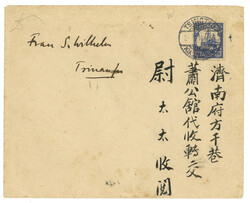 Frau S. Wilhelm
Tsinanfu
濟南府方千巷
蕭公館代收轉交
尉太太收閱
TSINANFU